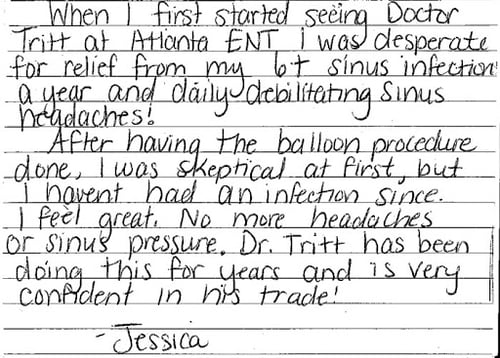 When I first started seeing Doctor
Tritt at Atlanta ENT I was desperate
for relief from my 6+ sinus infection
a year and daily debilitating sinus
headaches!
After having the balloon procedure
done, I was skeptical at first, but
I havent had an infection since.
I feel great. No more headaches
or sinus pressure. Dr. Tritt has been
doing this for years and is very
confident in his trade!
- Jessica